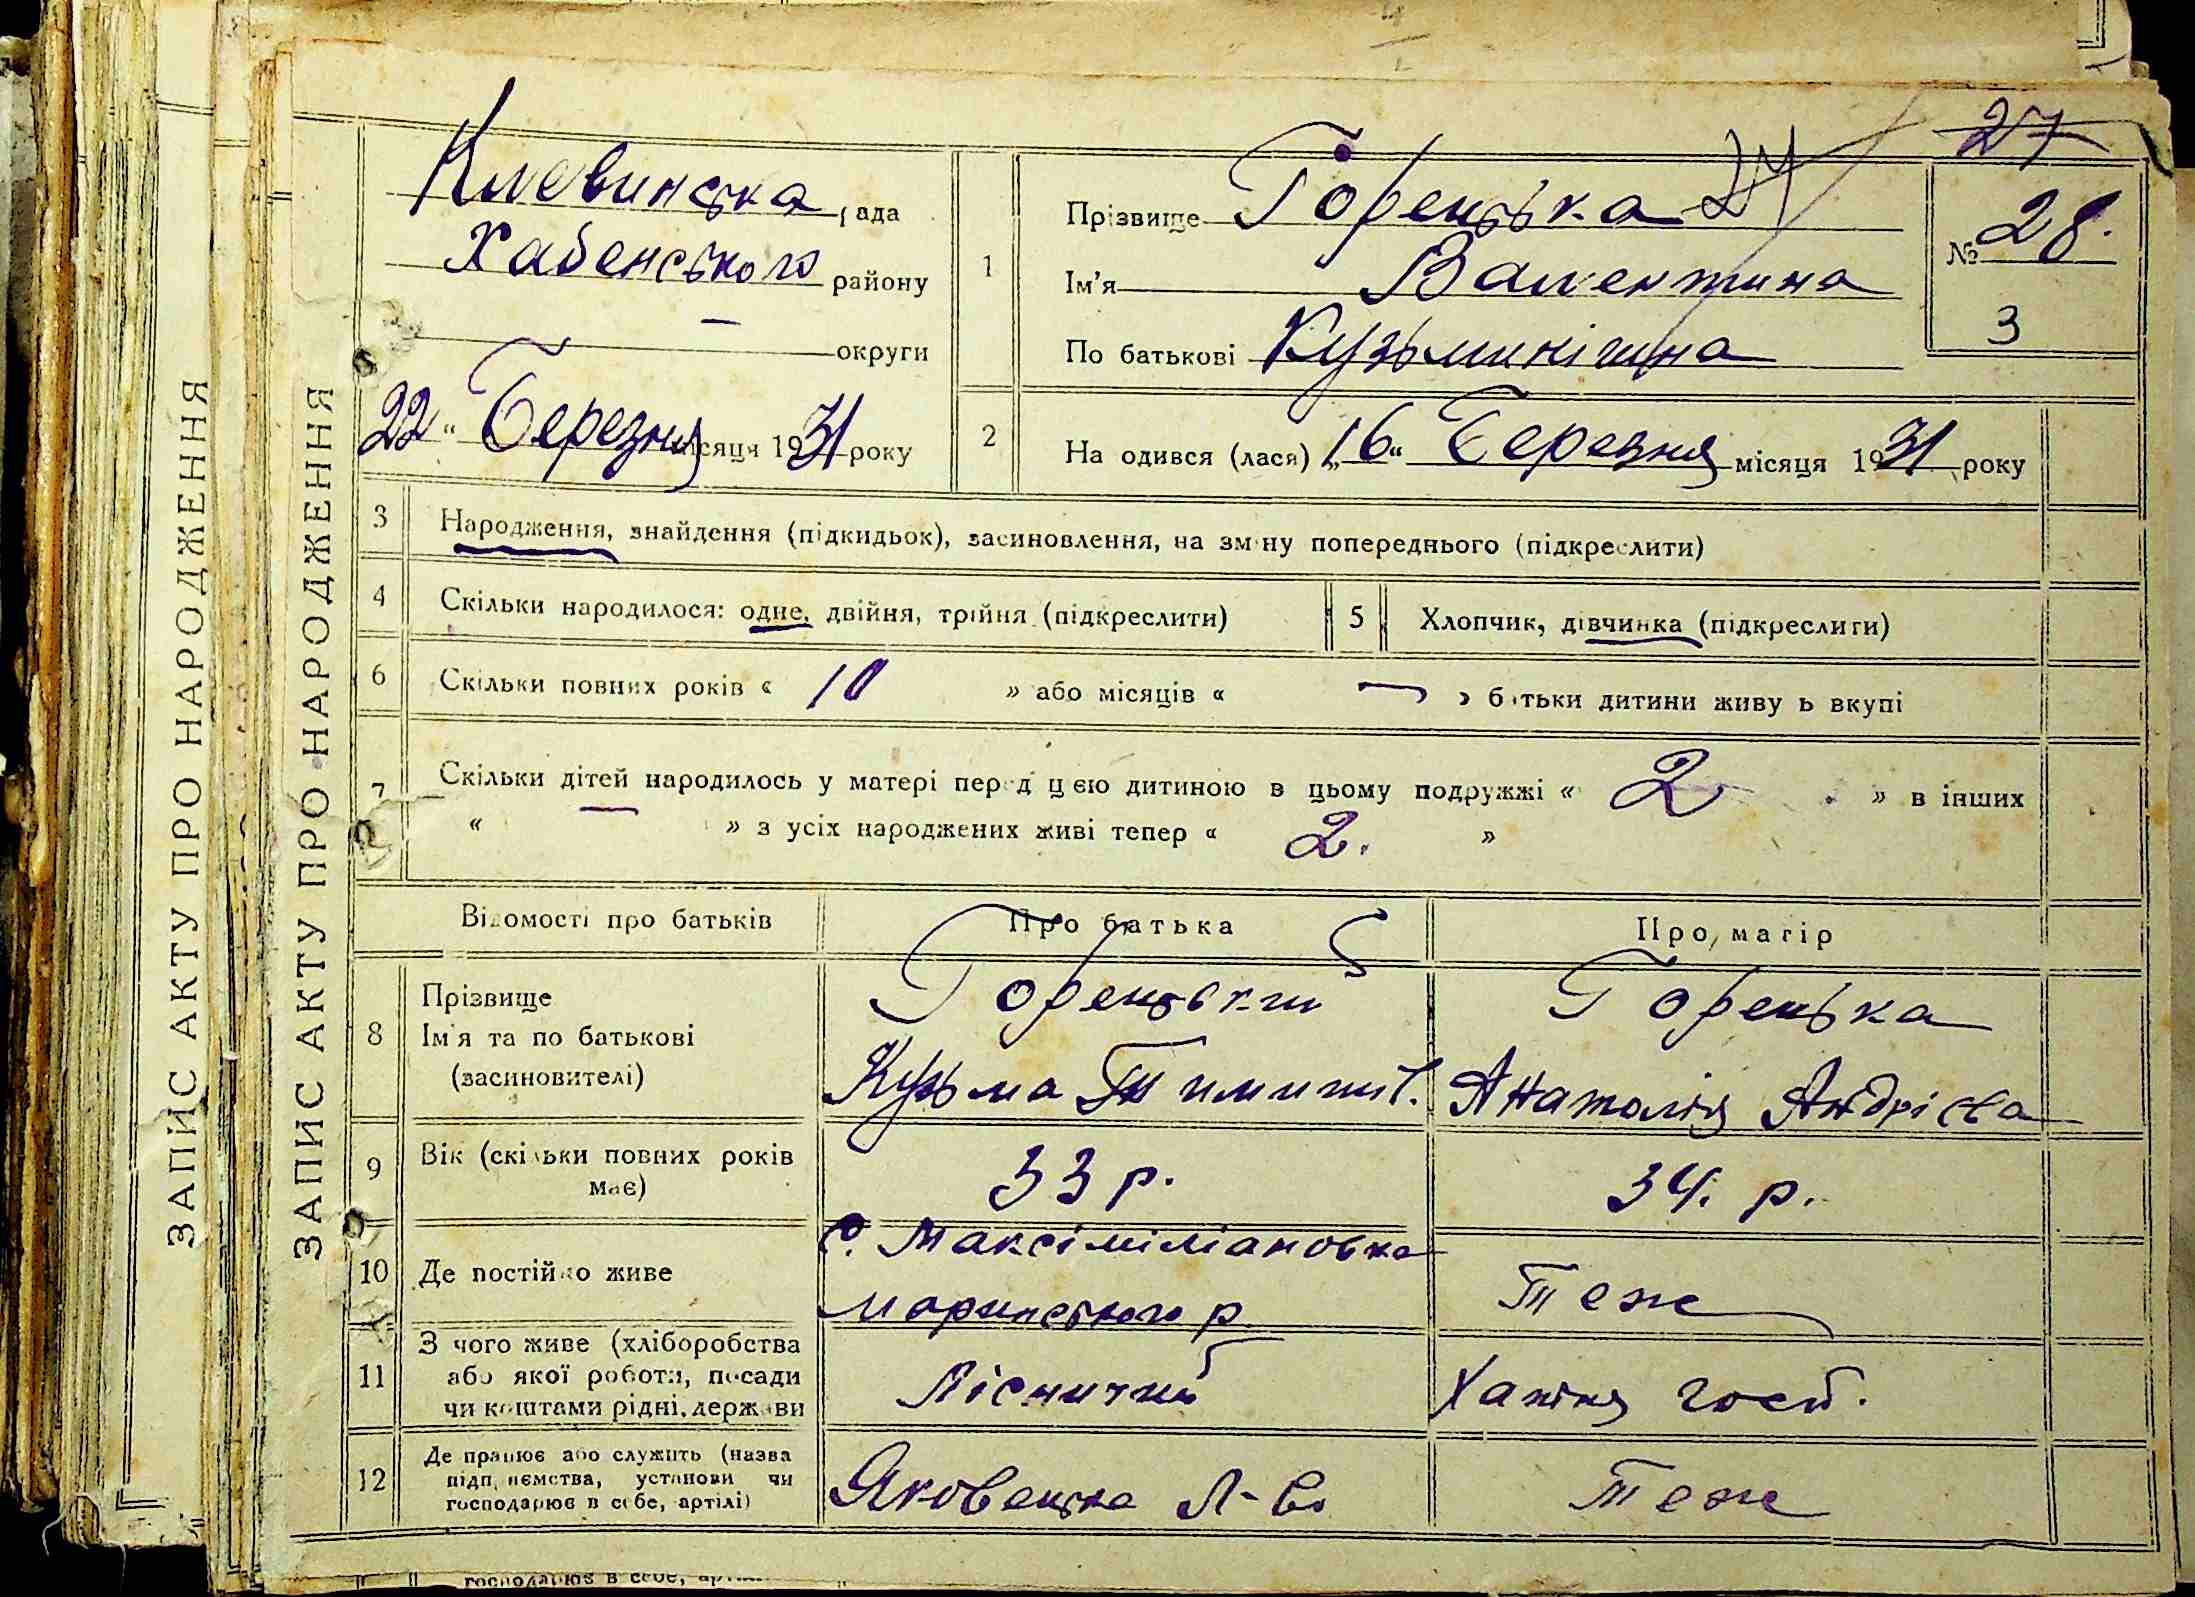 ЗАПИС АКТУ ПРО НАРОДЖЕННЯ
ЗАПИС АКТУ ПРО НАРОДЖЕННЯ
27
Клевинська рада
Хабенського району
— округи
22 " Березня місяця 1931 року
1
Прізвище Горенська
Ім'я Валентина
По батькові Кузьминішна
№ 28.
3
2
На одився (лася) „16" Березня місяця 1931 року
3 Народження, знайдення (підкидьок), засиновлення, на зміну попереднього (підкреслити)
4 Скільки народилося: одне, двійня, трійня (підкреслити)
5 Хлопчик, дівчинка (підкреслити)
6 Скільки повних років « 10 » або місяців « — » батьки дитини живуть вкупі
7 Скільки дітей народилось у матері перед цією дитиною в цьому подружжі « 2 » в інших
« — » з усіх народжених живі тепер « 2. »
Відомості про батьків
Про батька
Про матір
8
Прізвище
Ім'я та по батькові
(засиновителі)
Горенський
Кузьма
Горенька
Анатолія Андрієва
9
Вік (скільки повних років
має)
33 р.
34. р.
10 Де постійно живе
с. Максіміліановка
Маринського р.
Теж
11
З чого живе (хліборобства
або якої роботи, посади
чи коштами рідні, держави
Лісничий
Хатня госп.
12
Де працює або служить (назва
підприємства, установи чи
господарює в себе, артілі)
Яковенська Л-во
Теж
господарює в себе,